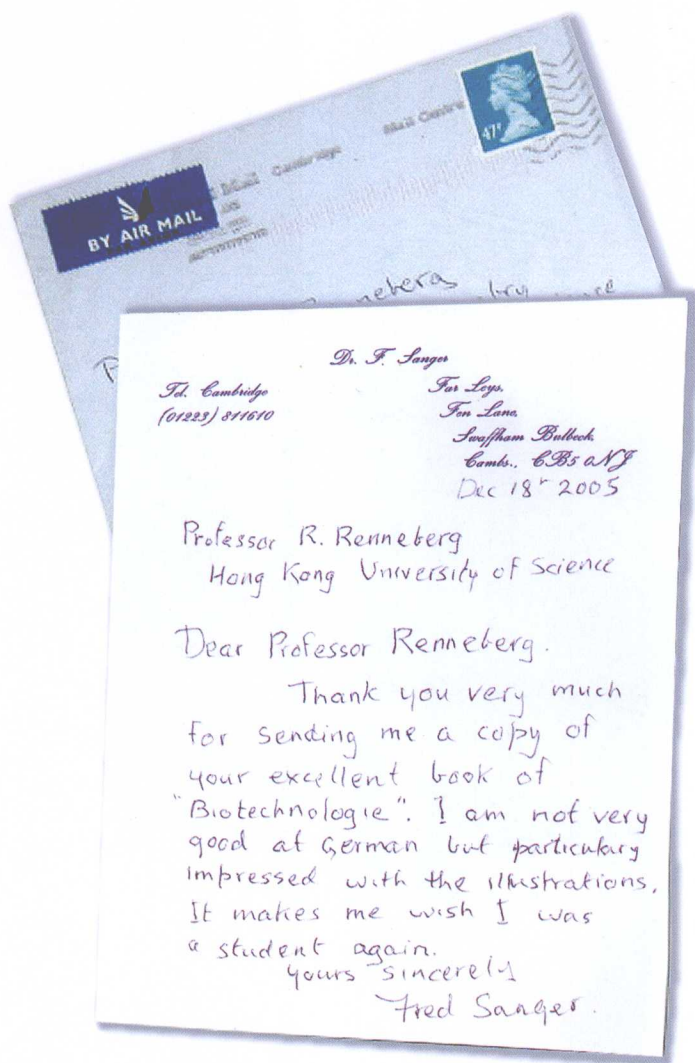 47P
Mail Cambridge Mail Centre
BY AIR MAIL
Dr. F. Sanger
Tel. Cambridge
(01223) 811610
Far Leys,
Fen Lane,
Swaffham Bulbeck,
Cambs., CB5 0NJ
Dec 18r 2005
Professor R. Renneberg
Hong Kong University of Science
Dear Professor Renneberg.
Thank you very much
for sending me a copy of
your excellent book of
"Biotechnologie". I am not very
good at German but particulary
impressed with the illustrations.
It makes me wish I was
a student again.
yours sincerely
Fred Sanger.